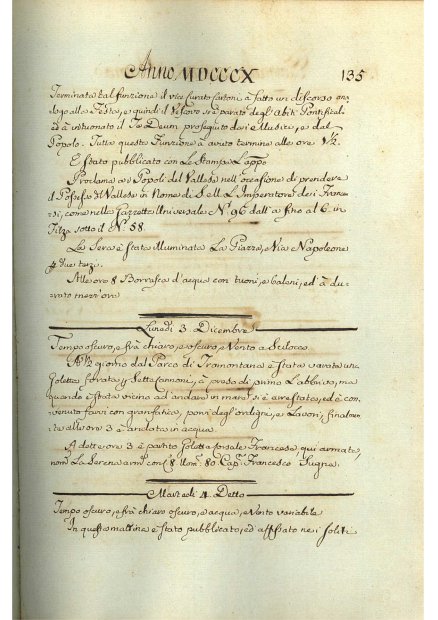 Anno MDCCCX 135
Terminata tal funzione il vice Curato Carloni à fatto un discorso ana
logo alla Festa, e quindi il Vescovo si è parato degl'abiti Pontificali
ed à intuonato il Te Deum proseguito dai Musici, e dal
Popolo. Tutta questa Funzione à avuto termine alle ore 1/2.
È stato pubblicato con Le Stampe
Proclama ai Popoli del Vallese nell'occasione di prendere
il Possesso del Vallese in Nome di S. M. L'Imperatore dei France
si, come nelle Gazzette Universale N.º 96 dall' a fino al 6. in
Filza sotto il N.º 58.
La Sera è stata illuminata La Piazza, Via Napoleone
e due terzi.
Alle ore 8 Borrasca d'acqua con tuoni, e baleni, ed à du-
rato mezz'ora
Lunedì 3 Dicembre
Tempo oscuro, e frà chiaro, e oscuro, e Vento a Scilocco.
A 1/2 giorno dal Parco di Tramontana è stata varata una
Goletta forata 7 Cannoni, à preso di primo L'abbrivo, ma
quando è stata vicino ad andare in mare si è arrestata, ed è con-
venuto farvi con gran fatica, porvi degl'ordigni, e Lavori, finalmen
te alle ore 3 è andata in acqua.
A dette ore 3 è partito Goletta Corsale Francese qui armata,
nom.ª La Serena arm.ª con C. 8 Uom.i 80 Cap. Francesco
Martedì 4. Detto
Tempo oscuro, e frà chiaro oscuro, e acqua, e Vento variabile
In questa mattina è stato pubblicato, ed affissato nei soliti